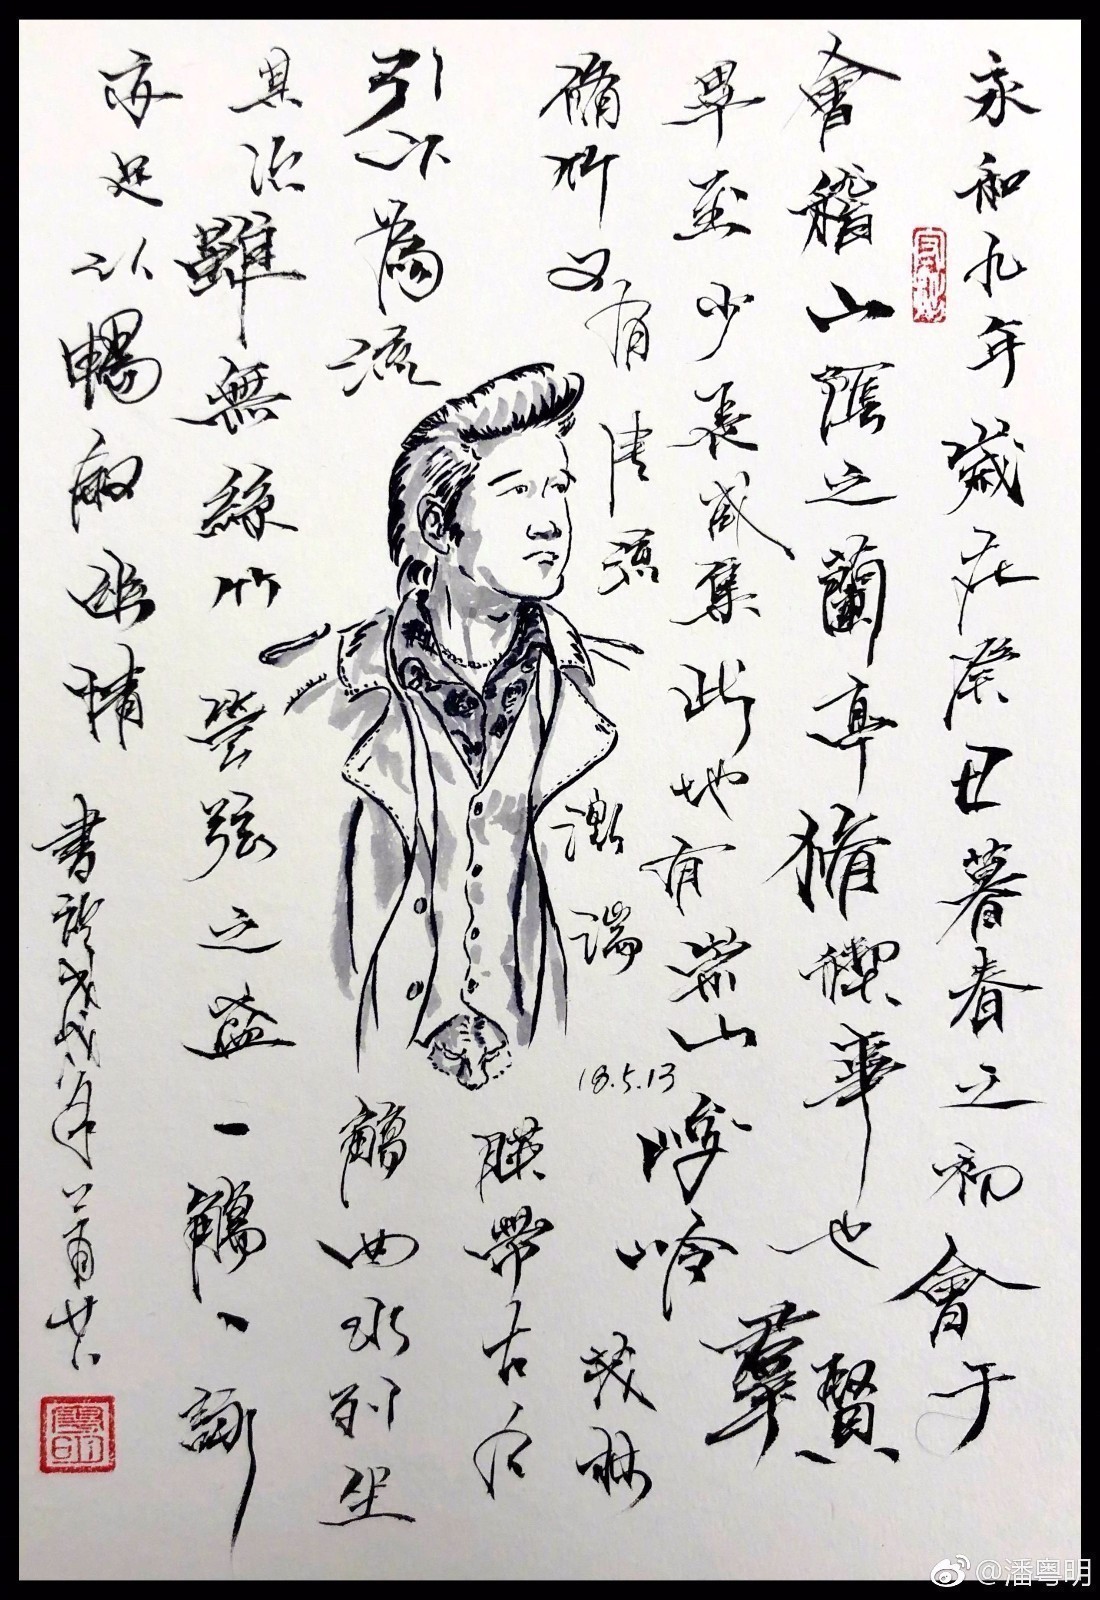 永和九年歲在癸丑暮春之初會于
會稽山陰之蘭亭脩禊事也羣賢
畢至少長咸集此地有崇山峻岭茂林
脩竹又有清流激湍映帶左右
18.5.13
引以為流觴曲水列坐
其次雖無絲竹管弦之盛一觴一詠
亦足以暢敘幽情
書於戊戌年
@潘粤明